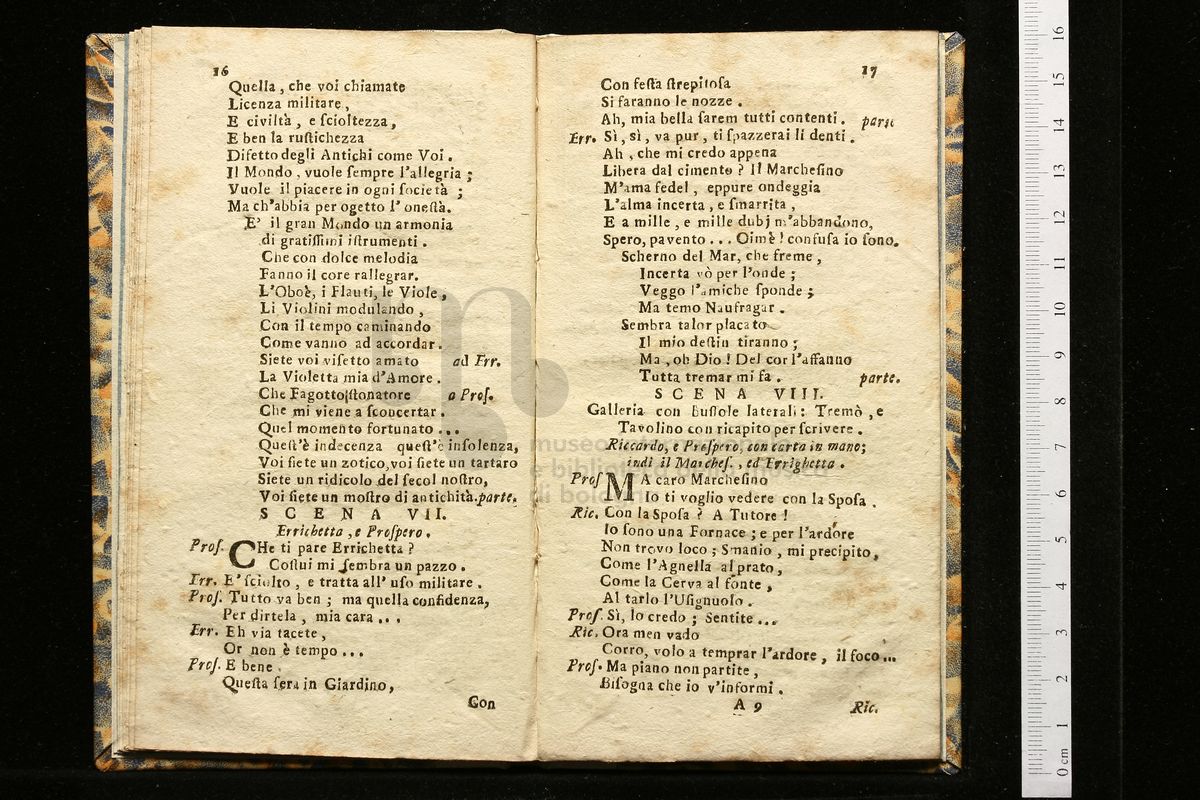 16
Quella, che voi chiamate
Licenza militare,
E civiltà, e ſcioltezza,
E ben la ruſtichezza
Difetto degli Antichi come Voi.
Il Mondo, vuole ſempre l'allegria;
Vuole il piacere in ogni ſocietà;
Ma ch'abbia per ogetto l'oneſtà.
E' il gran Mondo un armonia
di gratiſſimi iſtrumenti.
Che con dolce melodia
Fanno il core rallegrar.
L'Oboè, i Flauti, le Viole,
Li Violini modulando,
Con il tempo caminando
Come vanno ad accordar.
Siete voi viſetto amato ad Err.
La Violetta mia d'Amore.
Che Fagotto ſtonatore a Proſ.
Che mi viene a ſconcertar.
Quel momento fortunato...
Queſt'è indecenza queſt'è inſolenza,
Voi ſiete un zotico, voi ſiete un tartaro
Siete un ridicolo del ſecol noſtro,
Voi ſiete un moſtro di antichità. parte.
SCENA VII.
Errichetta, e Proſpero.
Proſ. CHe ti pare Errichetta?
Coſtui mi ſembra un pazzo.
Err. E' ſciolto, e tratta all' uſo militare.
Proſ. Tutto va ben; ma quella confidenza,
Per dirtela, mia cara...
Err. Eh via tacete,
Or non è tempo...
Proſ. E bene.
Queſta ſera in Giardino,
Con
17
Con feſta ſtrepitoſa
Si faranno le nozze.
Ah, mia bella ſarem tutti contenti. parte
Err. Sì, sì, va pur, ti ſpazzerai li denti.
Ah, che mi credo appena
Libera dal cimento? Il Marcheſino
M'ama fedel, eppure ondeggia
L'alma incerta, e ſmarrita,
E a mille, e mille dubj m'abbandono,
Spero, pavento... Oimè! confuſa io ſono.
Scherno del Mar, che freme,
Incerta vò per l'onde;
Veggo l'amiche ſponde;
Ma temo Naufragar.
Sembra talor placato
Il mio deſtin tiranno;
Ma, oh Dio! Del cor l'affanno
Tutta tremar mi fa. parte.
SCENA VIII.
Galleria con Buſſole laterali: Tremò, e
Tavolino con ricapito per ſcrivere.
Riccardo, e Proſpero, con carta in mano;
indi il Marcheſ., ed Errighetta.
Proſ MA caro Marcheſino
Io ti voglio vedere con la Spoſa.
Ric. Con la Spoſa? A Tutore!
Io ſono una Fornace; e per l'ardore
Non trovo loco; Smanio, mi precipito,
Come l'Agnella al prato,
Come la Cerva al fonte,
Al tarlo l'Uſignuolo.
Proſ. Sì, lo credo; Sentite...
Ric. Ora men vado
Corro, volo a temprar l'ardore, il foco...
Proſ. Ma piano non partite,
Biſogna che io v'informi.
A 9
Ric.